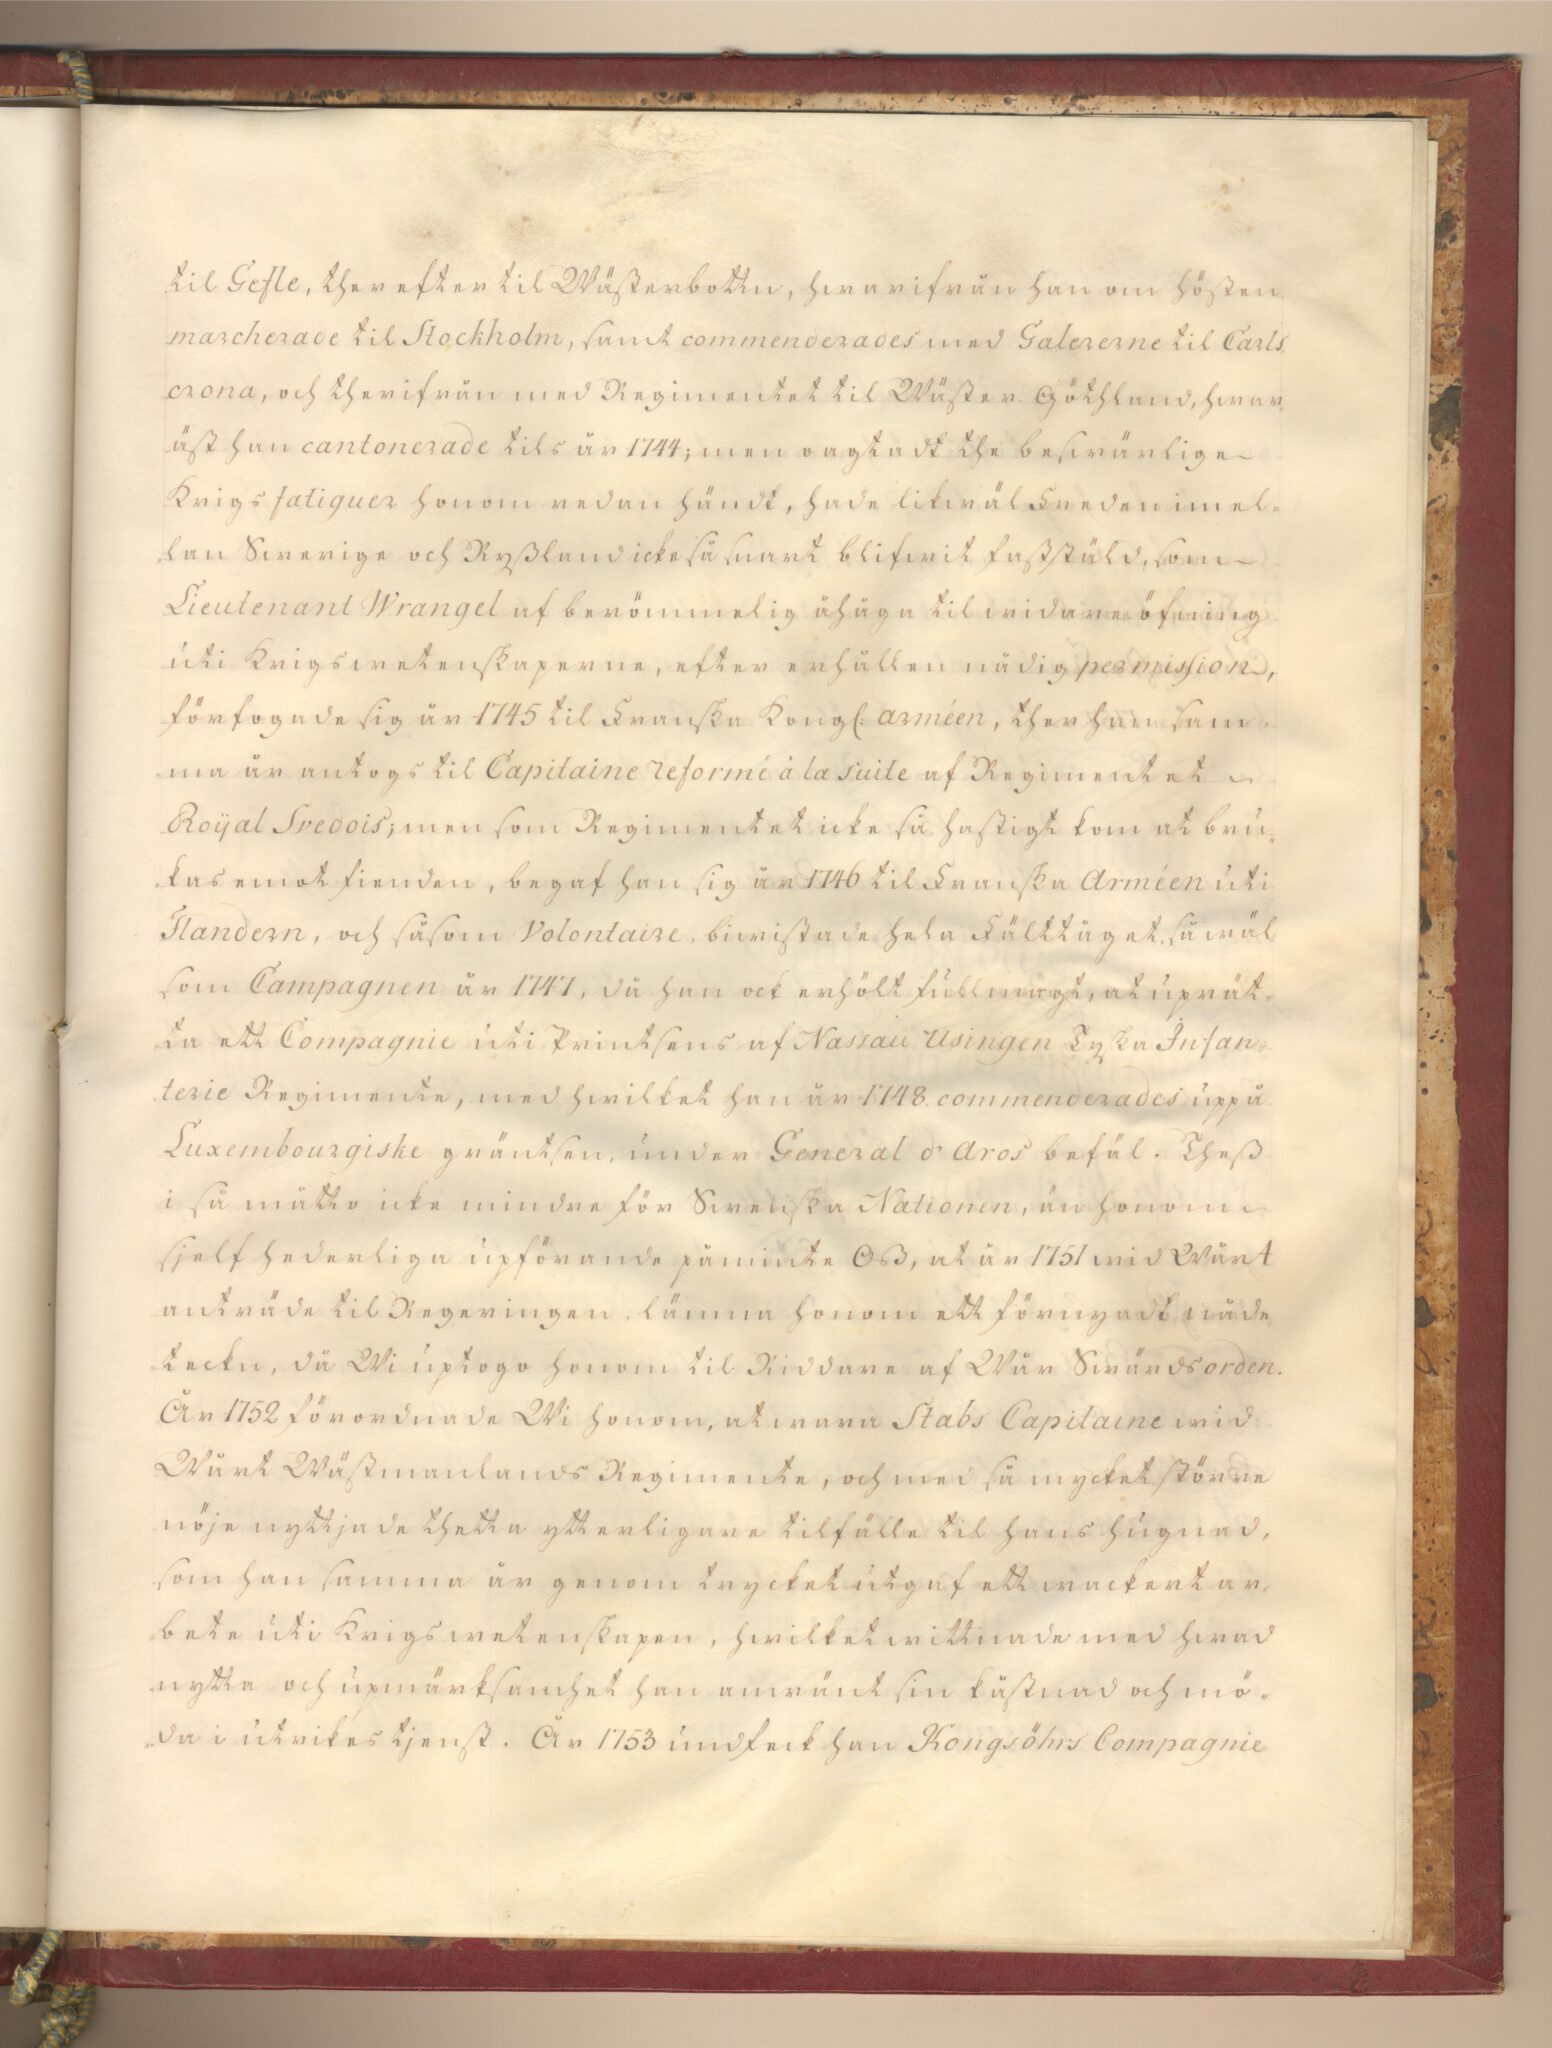 til Gefle, ther efter til Wästerbottn, hwarifrån han om hösten
marcherade til Stockholm, samt commenderades med Galererne til Carls
crona, och therifrån med Regimentet til Wäster Göthland, hwar,
äst han cantonerade tils år 1744; men oagtadt the beswärlige
Krigs fatiguer honom redan händt, hade likwäl Freden imel-
lan Swerige och Ryßland icke så snart blifwit fastställd, som
Lieutenant Wrangel af berömmelig åhåga til widare öfning
uti Krigswetenskaperne, efter erhållen nådig permission,
förfogade sig år 1745 til Franska Kongl: arméen, ther han sam-
ma år antogs til Capitaine reformé à la suite af Regimentet
Roÿal Svedois; men som Regimentet icke så hastigt kom at bru-
kas emot fienden, begaf han sig år 1746 til Franska Arméen uti
Flandern, och såsom Volontaire, biwistade hela Fälttåget, så wäl
som Campagnen år 1747, då han ock erhölt fullmagt, at uprät-
ta ett Compagnie uti Printsens af Nassau Usingen Tyska Infan-
terie Regimente, med hwilket han år 1748 commenderades uppå
Luxembourgiske gräntsen, under General d' Aros befäl. Theß
i så måtto icke mindre för Swenska Nationen, än honom
sjelf hederliga upförande påminte Oß, at år 1751 wid Wårt
anträde til Regeringen, lämna honom ett förnyadt nåde
teckn, då Wi uptogo honom til Riddare af Wår Swärdsorden.
År 1752 förordnade Wi honom, at wara Stabs Capitaine wid
Wårt Wästmanlands Regimente, och med så mycket större
nöje nyttjade thetta ytterligare tilfälle til hans hugnad,
som han samma år genom trycket utgaf ett wackert ar-
bete uti Krigswetenskapen, hwilket wittnade med hwad
nytta och upmärksamhet han anwänt sin kåstnad och mö-
da i utrikes tjenst. År 1753 undfeck han Kongsöhrs Compagnie